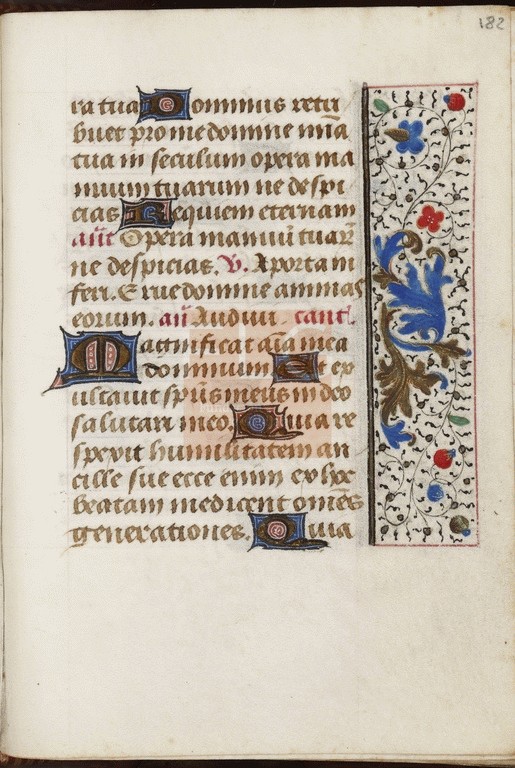 182
ra tua Dominus retri
buet pro me domine mia
tua in seculum opera ma
nuum tuarum ne despi
cias Requiem eternam
añt Opera manuū tuaꝝ
ne despicias. V. A porta in
feri. Erue domine animas
eorum. añ Audiui. cantꝭ.
Magnificat aīa mea
dominum Et ex
ultauit spūs meus in deo
salutari meo. Quia re
spexit humilitatem an
cille sue ecce enim ex hoc
beatam me dicent omēs
generationes. Quia